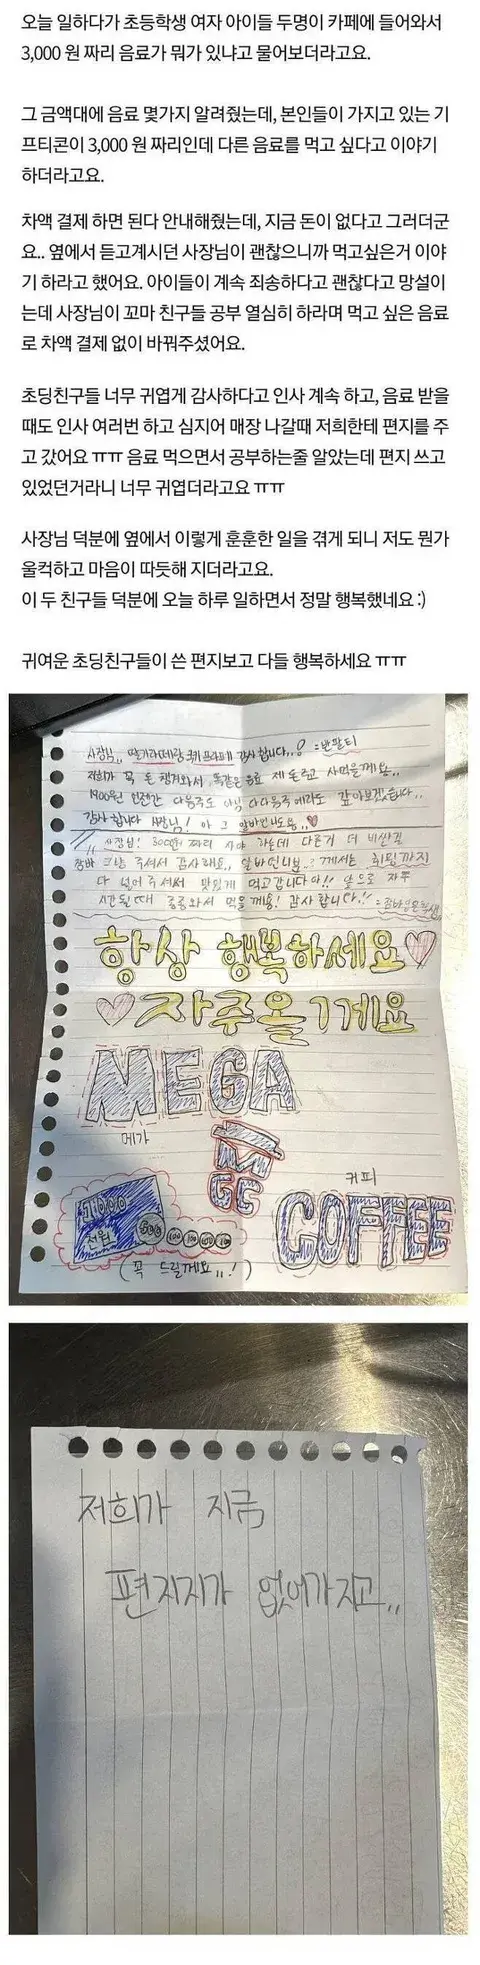 오늘 일하다가 초등학생 여자 아이들 두명이 카페에 들어와서
3,000 원 짜리 음료가 뭐가 있냐고 물어보더라고요.
그 금액대에 음료 몇가지 알려줬는데, 본인들이 가지고 있는 기
프티콘이 3,000 원 짜리인데 다른 음료를 먹고 싶다고 이야기
하더라고요.
차액 결제 하면 된다 안내해줬는데, 지금 돈이 없다고 그러더군
요.. 옆에서 듣고계시던 사장님이 괜찮으니까 먹고싶은거 이야
기 하라고 했어요. 아이들이 계속 죄송하다고 괜찮다고 망설이
는데 사장님이 꼬마 친구들 공부 열심히 하라며 먹고 싶은 음료
로 차액 결제 없이 바꿔주셨어요.
초딩친구들 너무 귀엽게 감사하다고 인사 계속 하고, 음료 받을
때도 인사 여러번 하고 심지어 매장 나갈때 저희한테 편지를 주
고 갔어요 ㅠㅠ 음료 먹으면서 공부하는줄 알았는데 편지 쓰고
있었던거라니 너무 귀엽더라고요 ㅠㅠ
사장님 덕분에 옆에서 이렇게 훈훈한 일을 겪게 되니 저도 뭔가
울컥하고 마음이 따듯해 지더라고요.
이 두 친구들 덕분에 오늘 하루 일하면서 정말 행복했네요 :)
귀여운 초딩친구들이 쓴 편지보고 다들 행복하세요 ㅠㅠ
사장님,, 딸기라떼랑 쿠키프라페 감사합니다,,! :반팔티
저희가 꼭 돈 챙겨와서 똑같은 음료 제 돈주고 사먹을게용,,
1900원 언젠간 다음주도 아님 다다음주에라도 갚아보겠습니다..
감사합니다 사장님! 아 그 알바언니도용,,♡
사장님! 3000원 짜리 사야 하는데 다른거 더 비싼걸
그냥 주셔서 감사해요,, 알바언니분..? 께서는 휘핑까지
다 넣어 주셔서 맛있게 먹고갑니다아!! 앞으로 자주
시간될때 종종와서 먹을게용! 감사합니다!!
항상 행복하세요♡
♡자주올게요
MEGA
메가
MGC
커피
COFFEE
1000
천원
500 100 100 100 100
(꼭 드릴게요,,!)
저희가 지금
편지지가 없어가지고,,